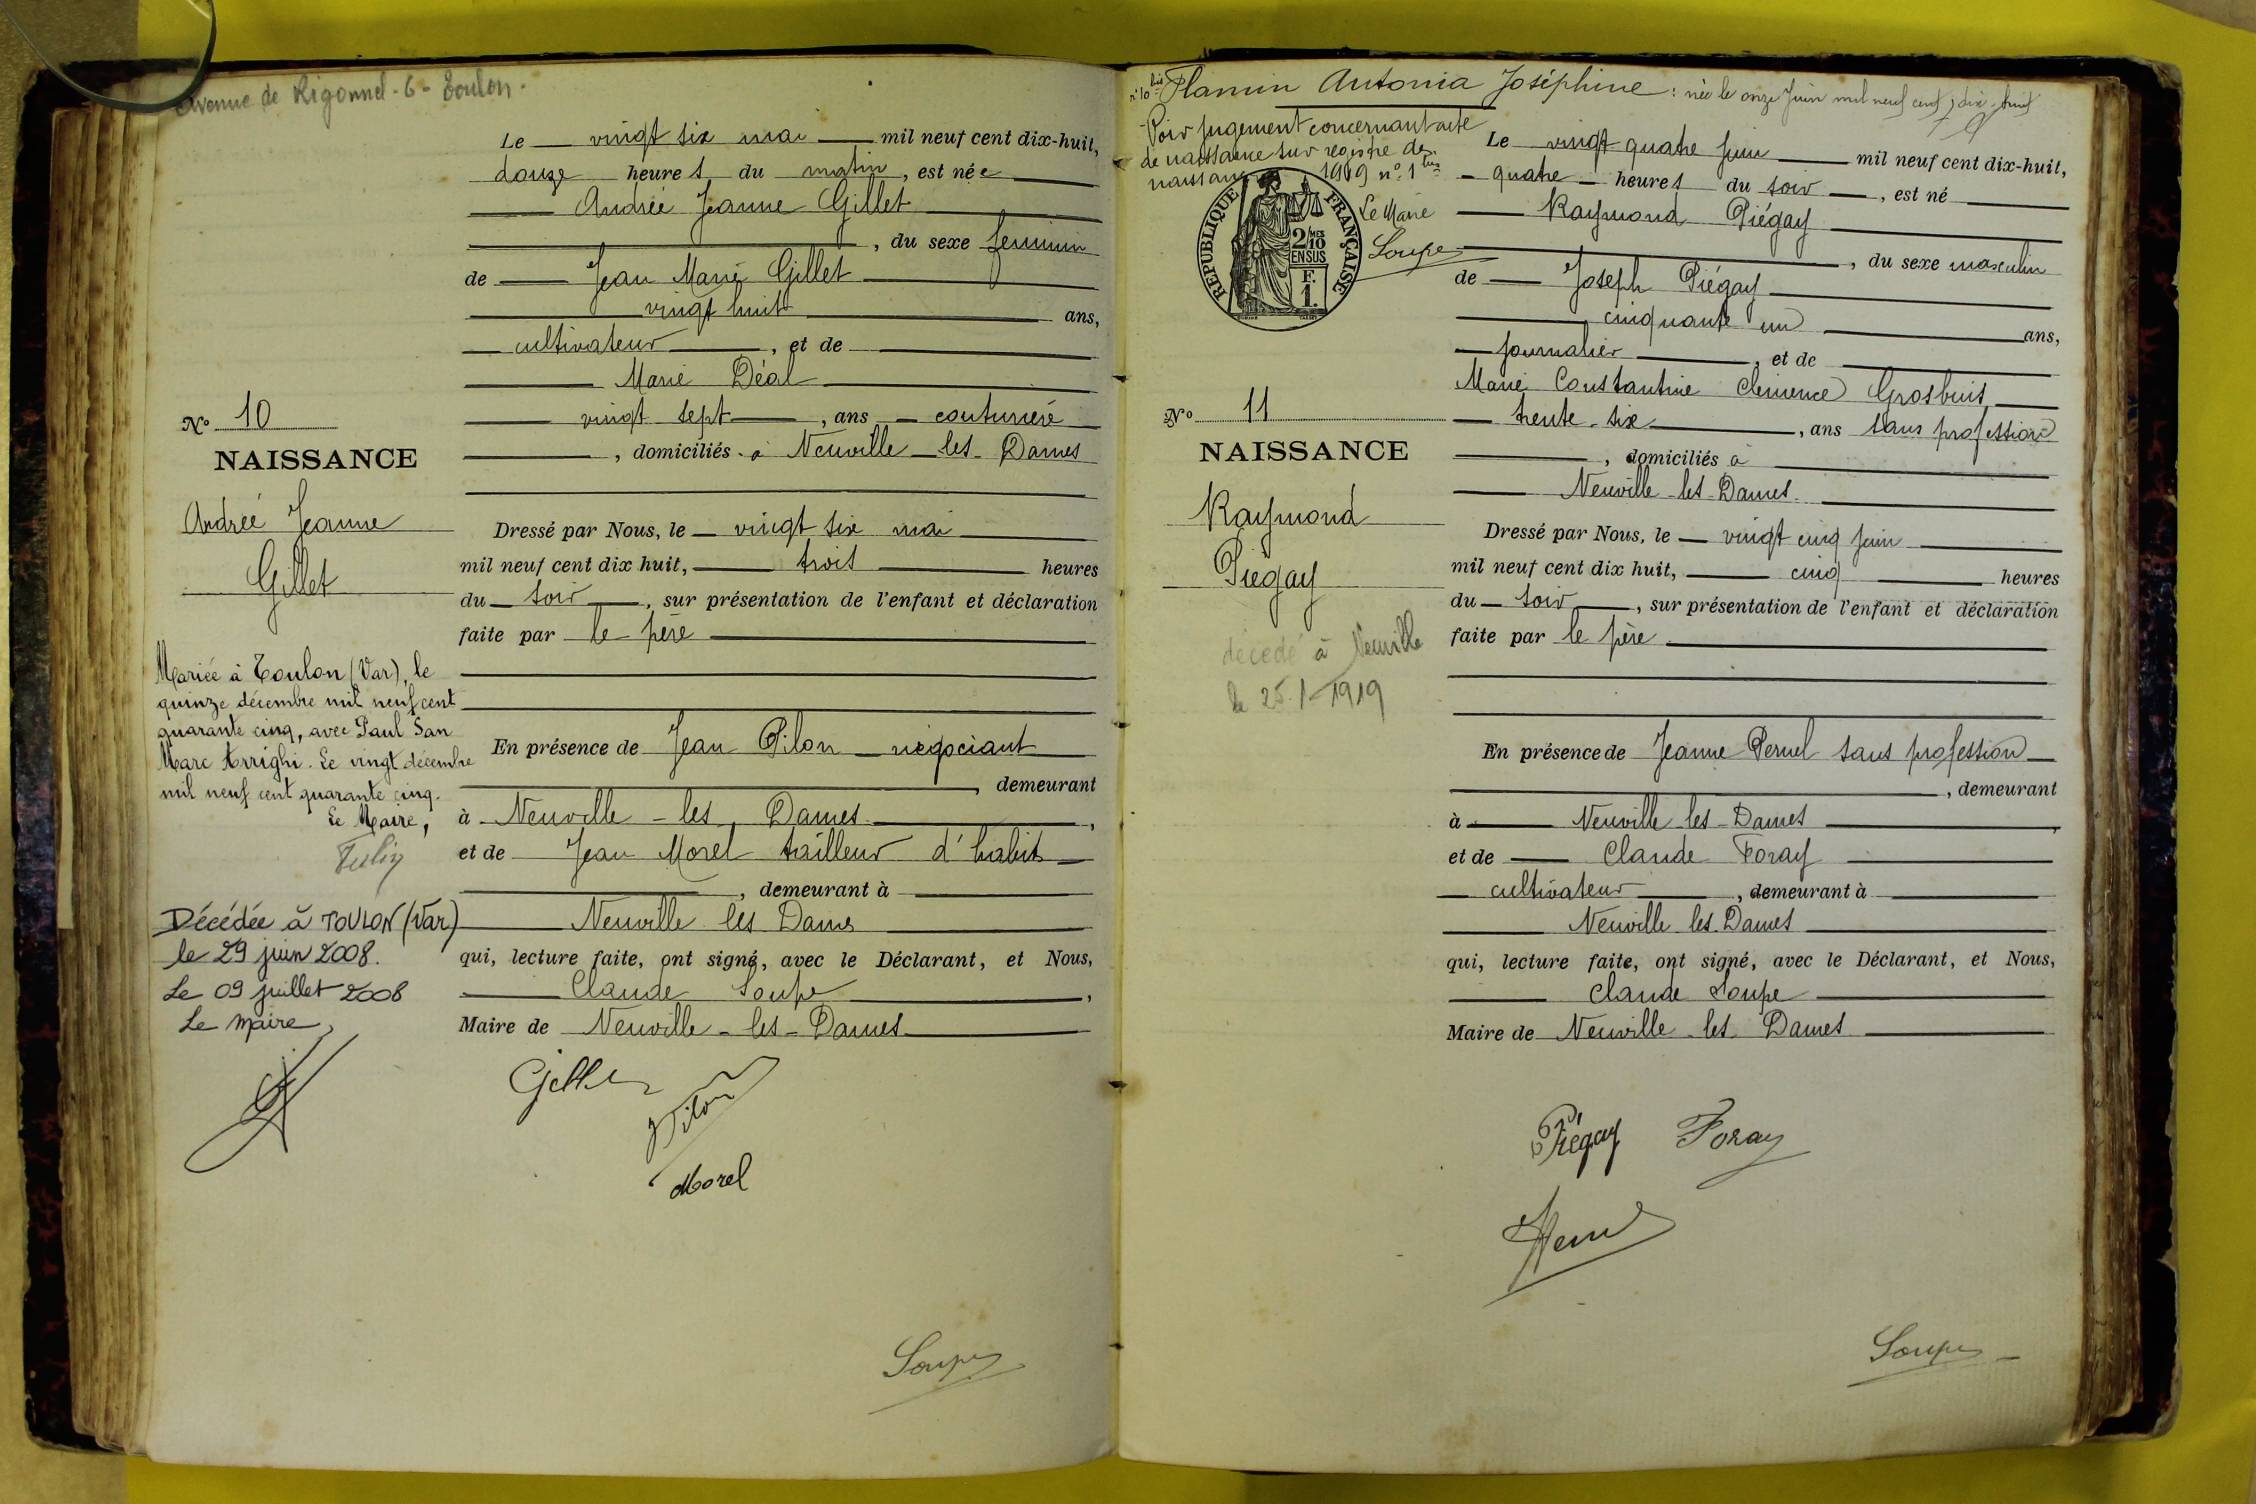 Avenue de Rigonnel - 6 - Toulon.
Le vingt six mai mil neuf cent dix-huit,
douze heures du matin, est née
Andrée Jeanne Gillet
, du sexe feminin
de Jean Marie Gillet
vingt huit ans,
cultivateur, et de
Marie Déal
vingt sept, ans couturière
, domiciliés à Neuville les Dames
Dressé par Nous, le vingt six mai
mil neuf cent dix huit, trois heures
du soir, sur présentation de l'enfant et déclaration
faite par le père
En présence de Jean Pilon négociant
, demeurant
à Neuville - les Dames,
et de Jean Morel tailleur d'habits
, demeurant à
Neuville les Dames
qui, lecture faite, ont signé, avec le Déclarant, et Nous,
Claude Soupe,
Maire de Neuville - les - Dames
Pilon
Morel
Soupe
No 10
NAISSANCE
Andrée Jeanne
Gillet
Mariée à Toulon (Var), le
quinze décembre mil neuf cent
quarante cinq, avec Paul San
Marc Arrighi. Le vingt décembre
mil neuf cent quarante cinq.
Le Maire,
Décédée à TOULON (Var)
le 29 juin 2008.
Le 09 juillet 2008
Le Maire,
n° 10 bis Flamin Antonia Joséphine : née le onze Juin mil neuf cent dix-huit
Voir jugement concernant acte
de naissance sur registre des
naissances 1919 n° 1
Le Maire
Soupe
RÉPUBLIQUE FRANÇAISE
2/10 MES
EN SUS
F.
1.
Le vingt quatre juin mil neuf cent dix-huit,
quatre heures du soir, est né
Raymond Piégay
, du sexe masculin
de Joseph Piégay
cinquante un ans,
journalier, et de
Marie Constantine Clémence Grosbuis
trente-six, ans sans profession
, domiciliés à
Neuville-les-Dames.
Dressé par Nous, le vingt cinq juin
mil neuf cent dix huit, cinq heures
du soir, sur présentation de l'enfant et déclaration
faite par le père
En présence de Jeanne sans profession
, demeurant
à Neuville-les-Dames,
et de Claude Foray
cultivateur, demeurant à
Neuville les Dames
qui, lecture faite, ont signé, avec le Déclarant, et Nous,
Claude Soupe
Maire de Neuville les Dames
Piégay Foray
Soupe
No 11
NAISSANCE
Raymond
Piégay
décédé à Neuville
le 25-1-1919